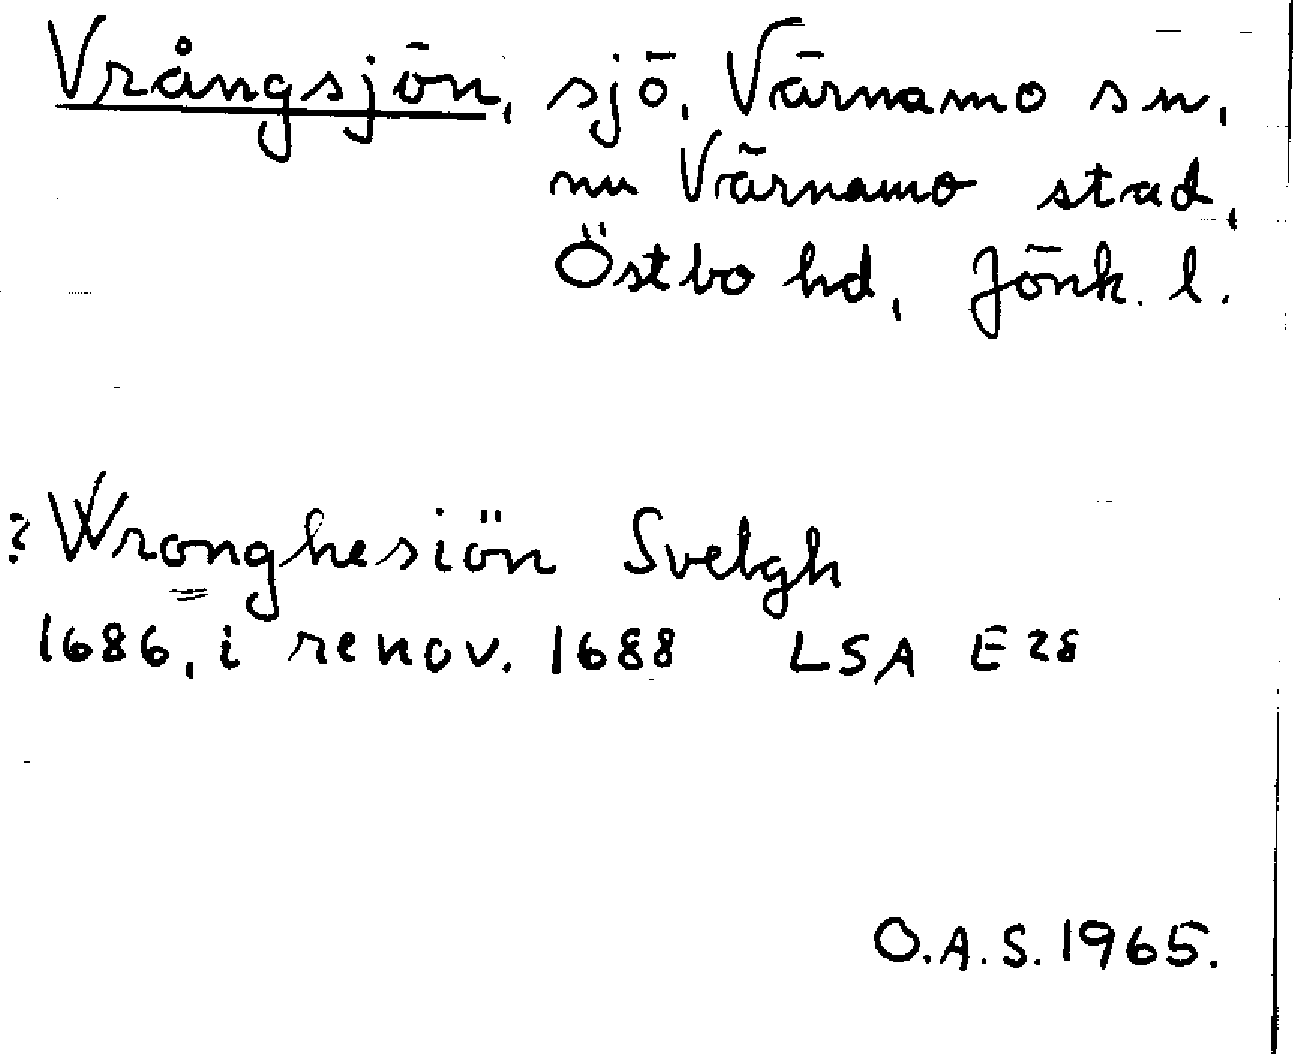 Vrångsjön, sjö, Värnamo sn,
nu Värnamo stad,
Östbo hd, Jönk. l.
? Wronghesiön Svelgh
1686, i renov. 1688 LSA E 28
O.A.S. 1965.